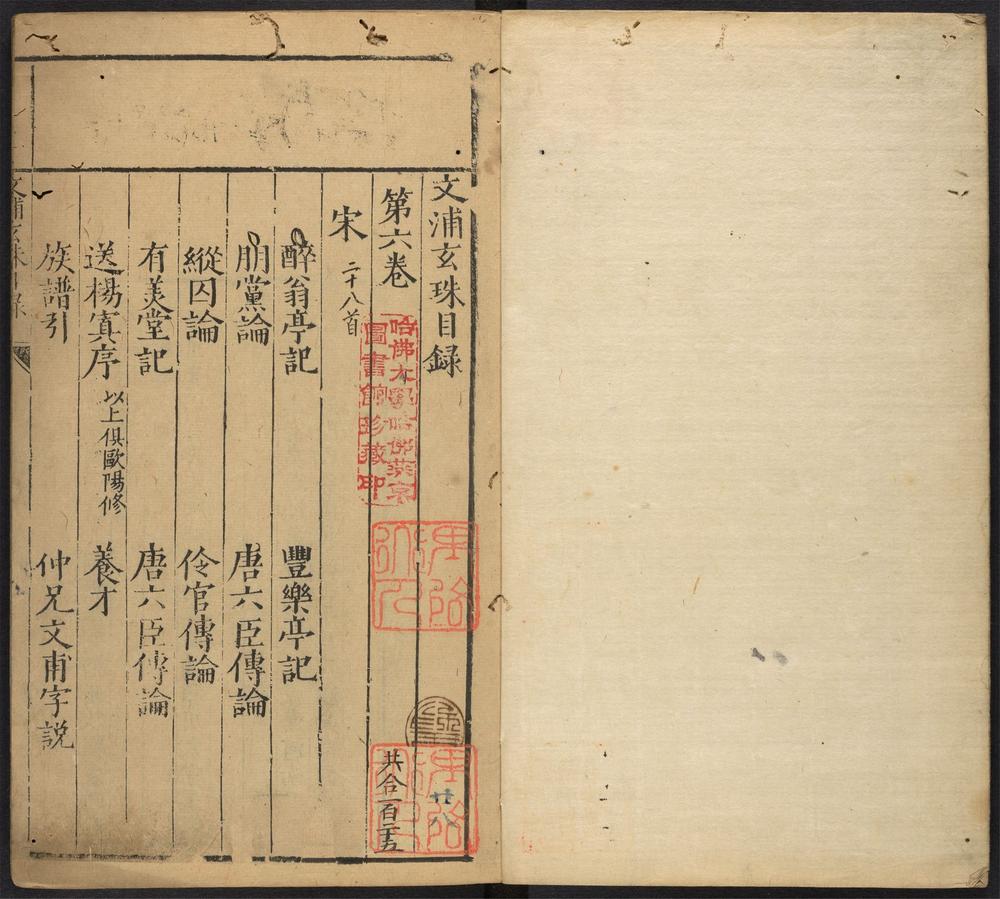 文浦玄珠目録
第六卷
宋
二十八首
醉翁亭記
豐樂亭記
朋黨論
唐六臣傳論
縱囚論
伶官傳論
有美堂記
唐六臣傳論
送楊寘序
以上俱歐陽修
養才
族譜引
仲兄文甫字説
文浦玄珠目録
哈佛大學哈佛燕京
圖書館珍藏印
廿八